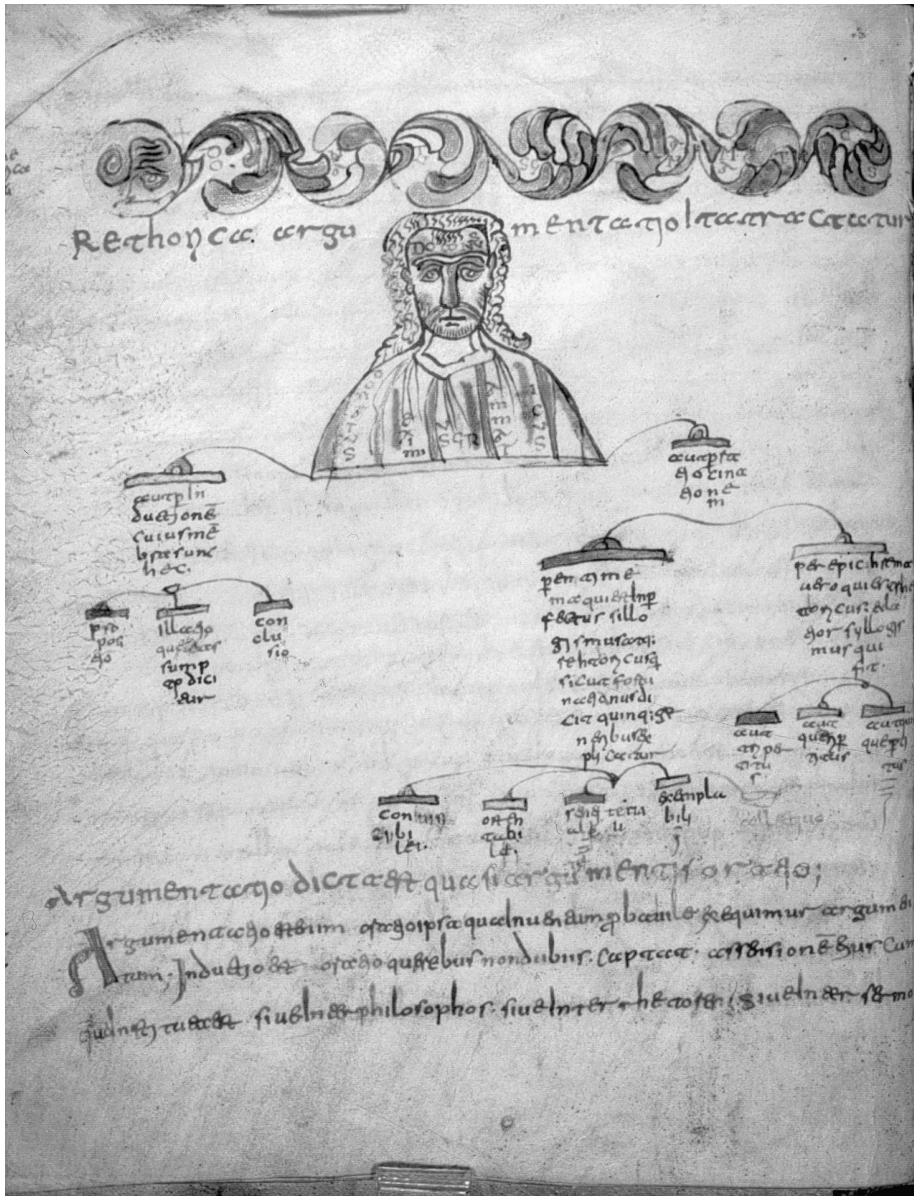 Rethorica argu mentatio Ita tractatur
aut p In
ductionē
cuius mē
bra sunt
hec.
aut p ra
tiocina
tionē
m
pro
posi
tio
Illatio
que & as
sump
tio dici
tur
con
clu
sio
p entime
ma qui est Inp
fectus sillo
gismus atq;
rethoricus
sicut fortu
natianus di
cit quinq; ge
neribus ex
plicatur
per epichirema
uero qui est rhe
toricus et la
tior syllogis
mus qui
fit.
aut
aut
aut
conuin
cibi
lei.
osten
tabi
lei.
exempla
bili
Argumentatio dicta est quasi argu mentis oratio;
Argumentatio est enim oratio ipsa qua Inuentum pbabile exequimur argum
tum; Inductio est oratio que rebus non dubiis. captat. assensionē eius cum
qua Instituta est siue Inter philosophos. siue Inter rhetores; siue Inter sermo